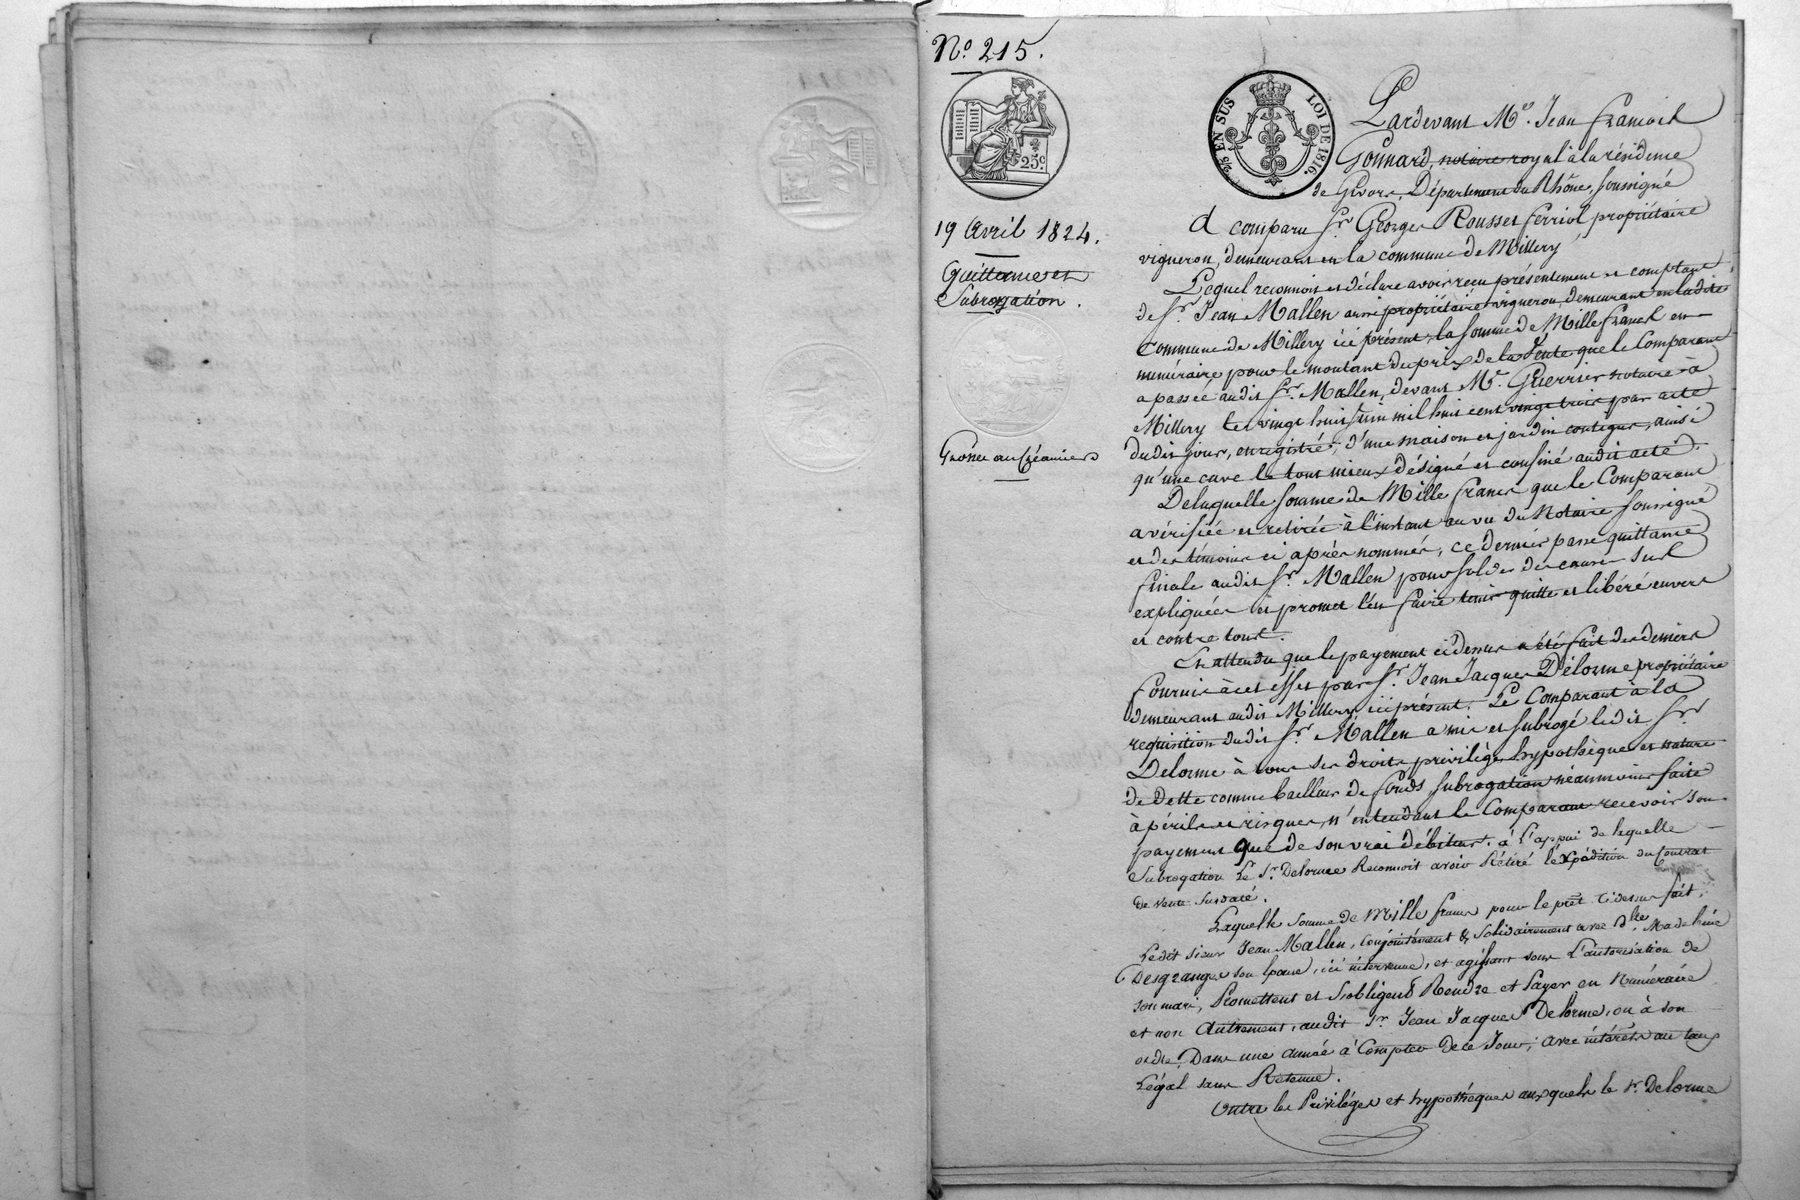 N.º 215.
25.c
2/5 EN SUS
LOI DE 1816.
19 Avril 1824.
Quittance et
Subrogation.
Grosse au Créancier
Pardevant M.e Jean François
Gonnard, notaire royal à la résidence
de Givors, Département du Rhône, soussigné
A comparu Sr. Georges Rousset Ferriol propriétaire
vigneron, demeurant en la commune de Millery
Lequel reconnoit et déclare avoir reçu présentement et comptant
de Sr. Jean Mallen aussi propriétaire vigneron, demeurant en ladite
Commune de Millery ici présent, la somme de Mille francs en
numéraire pour le montant du prix de la Vente que le Comparant
a passée audit Sr. Mallen, devant M.e Guerrier notaire à
Millery le vingt huit Juin mil huit cent vingt trois par acte
dudit jour, enregistré, d'une maison et jardin contigus, ainsi
qu'une cave le tout mieux désigné et confiné audit acte.
De laquelle somme de Mille francs que le Comparant
a vérifiée et retirée à l'instant au vu du Notaire soussigné
et des témoins ci après nommés, ce dernier passe quittance
finale audit Sr. Mallen pour solde des causes sus
expliquées et promet l'en faire tenir quitte et libéré envers
et contre tous.
Et attendu que le payement ci dessus a été fait des deniers
fournis à cet effet par Sr. Jean Jacques Délorme propriétaire
demeurant audit Millery ici présent. Le Comparant à la
requisition dudit Sr. Mallen a mis et subrogé ledit Sr.
Delorme à tous ses droits privilège hypothèque et nature
de Dette comme bailleur de fonds, subrogation néanmoins faite
à périls et risques, n'entendant le Comparant recevoir son
payement que de son vrai débiteur. à L'appui de laquelle
Subrogation Le Sr. Delorme Reconnoit avoir Rétiré l'éxpédition du Contrat
De vente Susdaté.
Laquelle Somme de Mille francs pour le prêt Cidessus fait,
Ledit Sieur Jean Mallen, conjointement & Solidairement avec dlle. Madeleine
Desgranges son Epouse, ici intervenue, et agissant sous L'autorisation de
son mari, Promettent et S'obligent Rendre et Payer en Numéraire
et non Autrement, audit Sr. Jean Jacques Delorme, ou à son
ordre, Dans une année à Compter de ce Jour, avec intérêts au taux
Légal sans Retenue.
Outre les Priviléges et hypothéques auxquels le Sr. Delorme